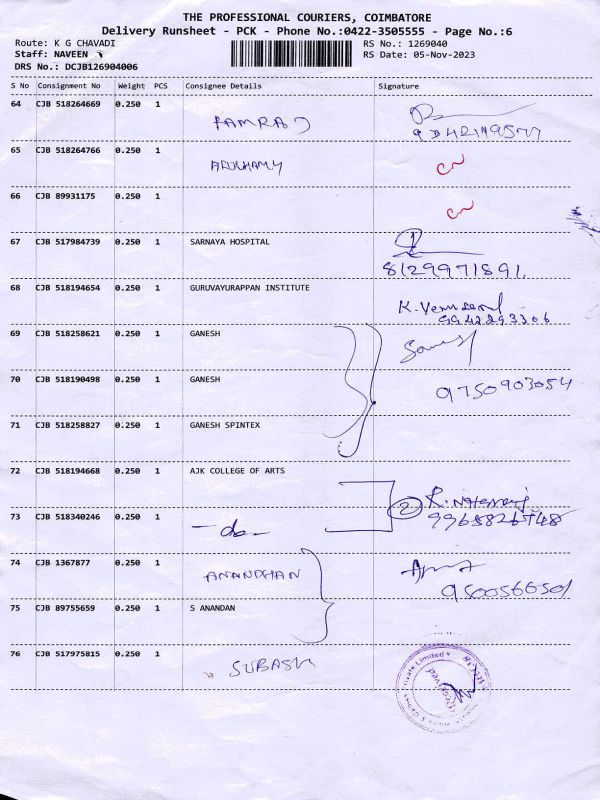 THE PROFESSIONAL COURIERS, COIMBATORE
Delivery Runsheet - PCK - Phone No.:0422-3505555 - Page No.:6
Route: K G CHAVADI RS No.: 1269040
Staff: NAVEEN RS Date: 05-Nov-2023
DRS No.: DCJB126904006
S No Consignment No Weight PCS Consignee Details Signature
64 CJB 518264669 0.250 1 RAMRAJ
65 CJB 518264766 0.250 1 ARUCHAMY
66 CJB 89931175 0.250 1
67 CJB 517984739 0.250 1 SARNAYA HOSPITAL
8129971891.
68 CJB 518194654 0.250 1 GURUVAYURAPPAN INSTITUTE
9942293306
69 CJB 518258621 0.250 1 GANESH
70 CJB 518190498 0.250 1 GANESH 9750903054
71 CJB 518258827 0.250 1 GANESH SPINTEX
72 CJB 518194668 0.250 1 AJK COLLEGE OF ARTS
2
73 CJB 518340246 0.250 1 -do-
74 CJB 1367877 0.250 1 ANANDHAN
9500566501
75 CJB 89755659 0.250 1 S ANANDAN
76 CJB 517975815 0.250 1 SUBASH